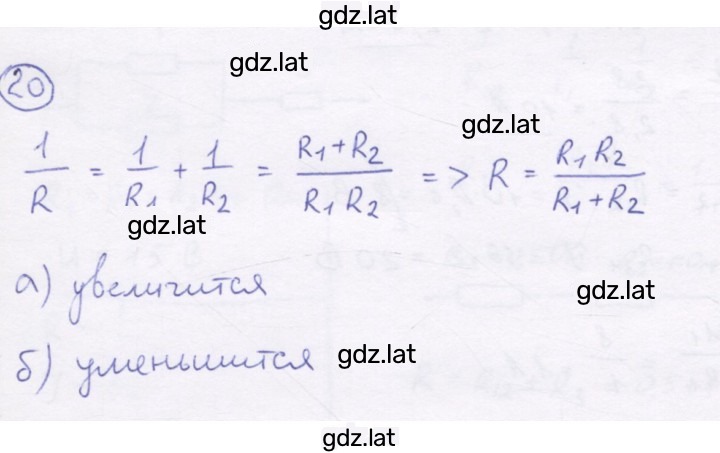 gdz.lat
gdz.lat
20
gdz.lat
1/R = 1/R₁ + 1/R₂ = (R₁+R₂)/(R₁R₂) => R = (R₁R₂)/(R₁+R₂)
gdz.lat
а) увеличится
gdz.lat
б) уменьшится
gdz.lat
gdz.lat